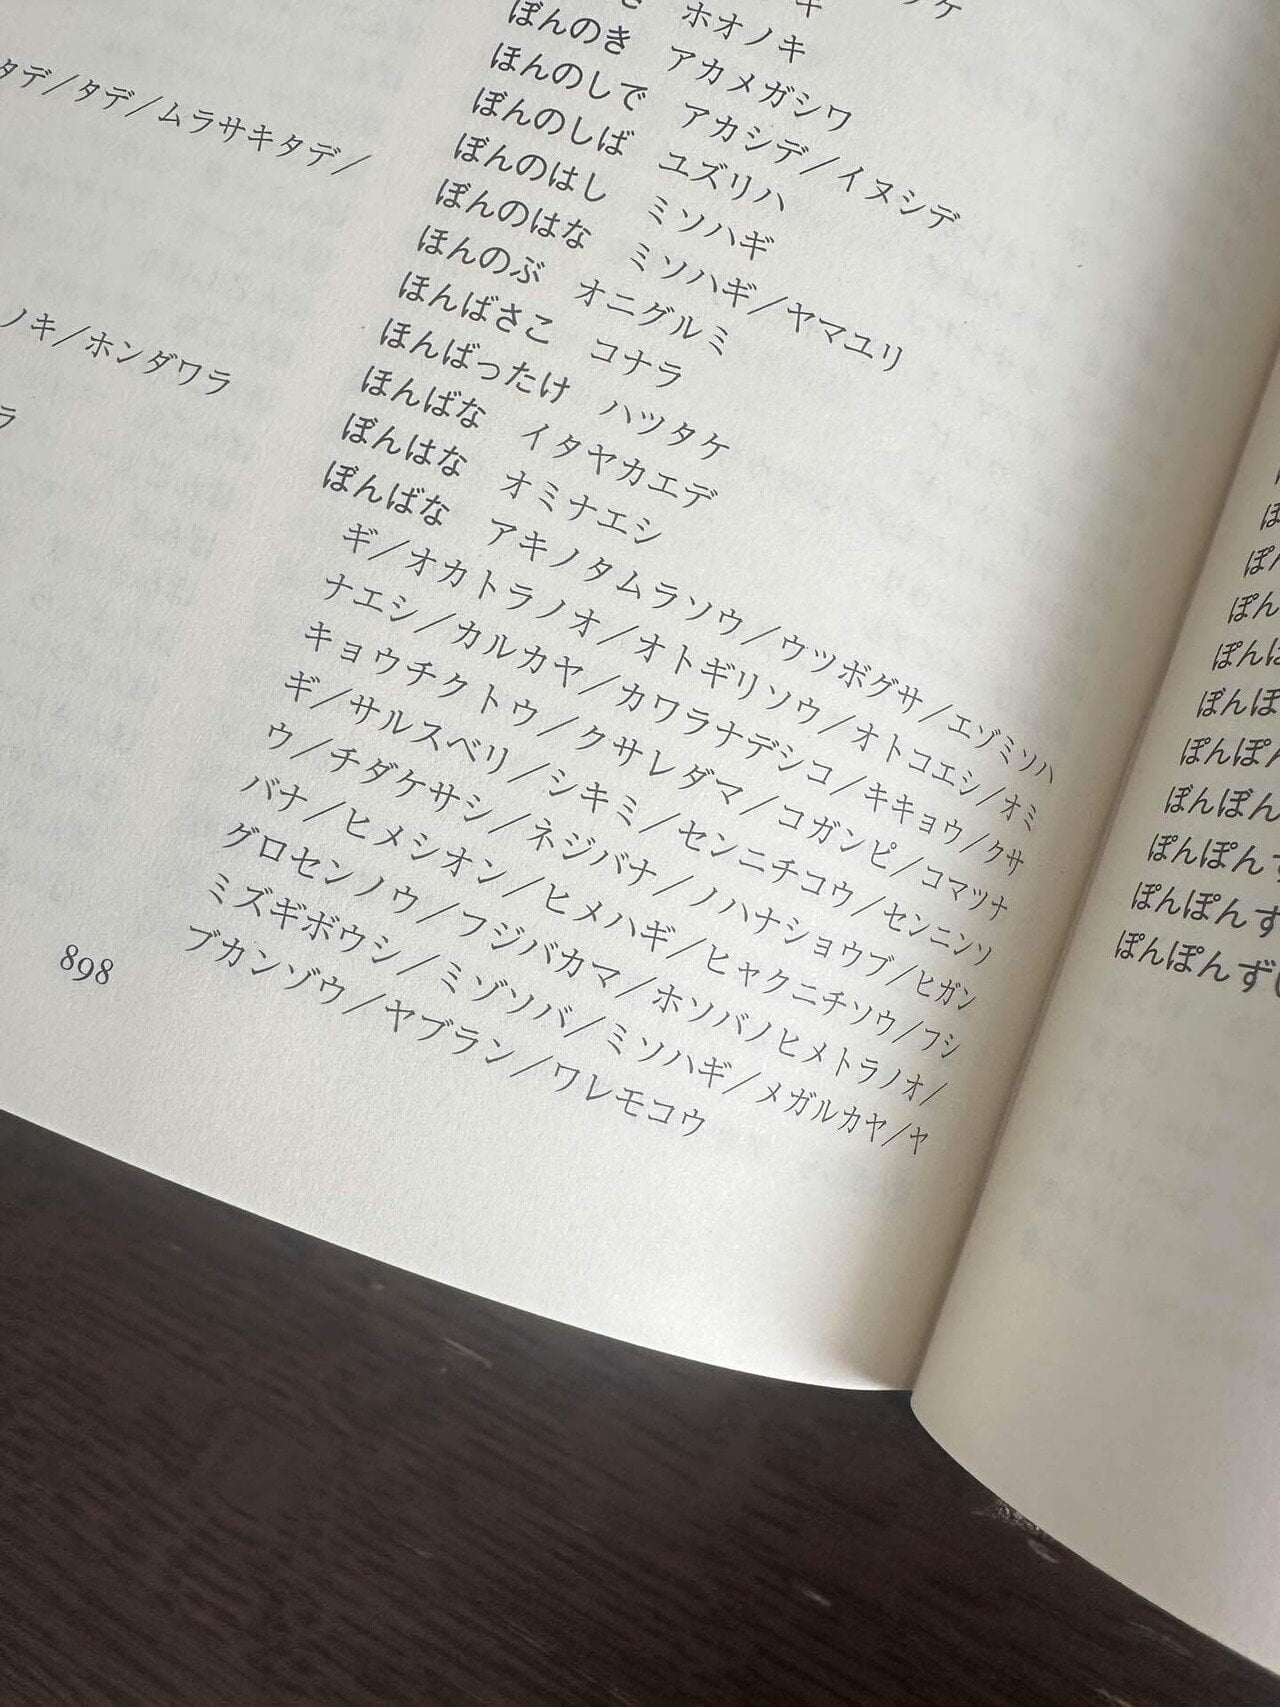 タデ/タデ/ムラサキタデ/
ノキ/ホンダワラ
ラ
ホオノキ
ぼんのき　アカメガシワ
ほんのしで　アカシデ/イヌシデ
ぼんのしば　ユズリハ
ぼんのはし　ミソハギ
ぼんのはな　ミソハギ/ヤマユリ
ほんのぶ　オニグルミ
ほんばさこ　コナラ
ほんばったけ　ハツタケ
ほんばな　イタヤカエデ
ぼんはな　オミナエシ
ぼんばな　アキノタムラソウ/ウツボグサ/エゾミソハ
ギ/オカトラノオ/オトギリソウ/オトコエシ/オミ
ナエシ/カルカヤ/カワラナデシコ/キキョウ/クサ
キョウチクトウ/クサレダマ/コガンピ/コマツナ
ギ/サルスベリ/シキミ/センニチコウ/センニンソ
ウ/チダケサシ/ネジバナ/ノハナショウブ/ヒガン
バナ/ヒメシオン/ヒメハギ/ヒャクニチソウ/フシ
グロセンノウ/フジバカマ/ホソバノヒメトラノオ/
ミズギボウシ/ミゾソバ/ミソハギ/メガルカヤ/ヤ
ブカンゾウ/ヤブラン/ワレモコウ
898
ぽんぽん
ぼんぼん
ぽんぽんず
ぽんぽんず
ぽんぽんず